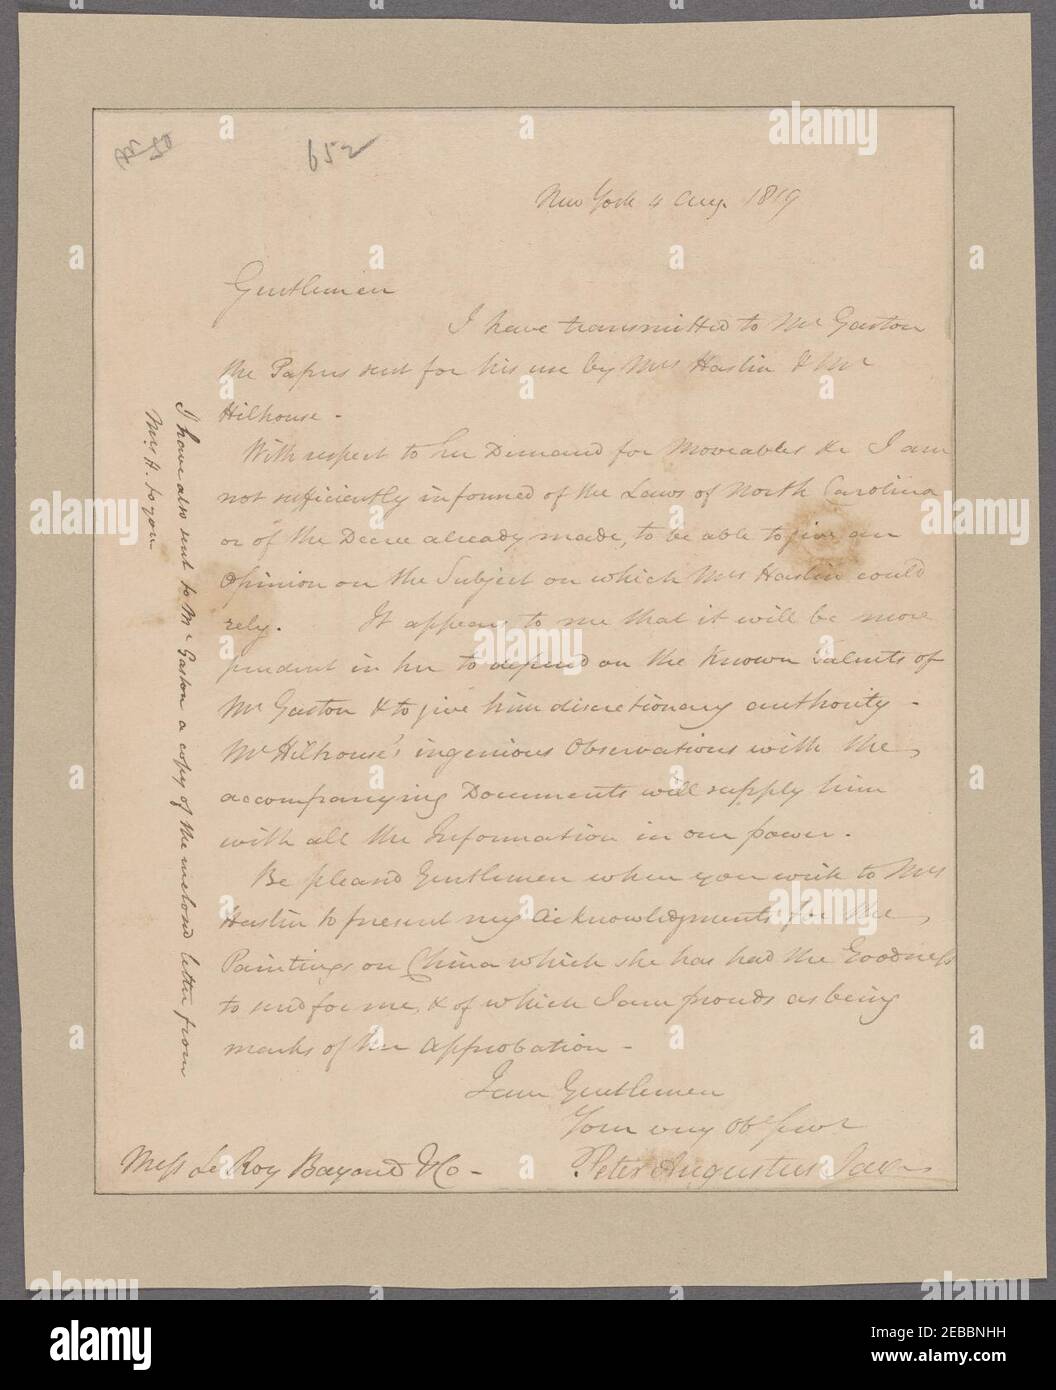 652
New York 4 Aug. 1819
Gentlemen
I have transmitted to Mr Gaston
the Papers sent for his use by Mrs Haslin & Mr
Hilhouse -
With respect to her Demand for Moveables &c I am
not sufficiently informed of the Laws of North Carolina
or of the Decree already made, to be able to give an
Opinion on the Subject on which Mrs Haslin could
rely. It appears to me that it will be more
prudent in her to depend on the Known Talents of
Mr Gaston & to give him discretionary authority -
Mr Hilhouse's ingenious Observations with the
accompanying Documents will supply him
with all the Information in our power.
Be pleased Gentlemen when you write to Mrs
Haslin to present my Acknowledgments for the
Paintings on China which she has had the Goodness
to send for me, & of which I am proud as being
marks of her Approbation -
I am Gentlemen
Your very Ob Servt
Peter Augustus Jay
Mess Le Roy Bayard & Co -
I have also sent to Mr Gaston a copy of the inclosed letter from
Mrs. H. to you
a
alamy
alamy
Image ID: 2EBBNHH
www.alamy.com